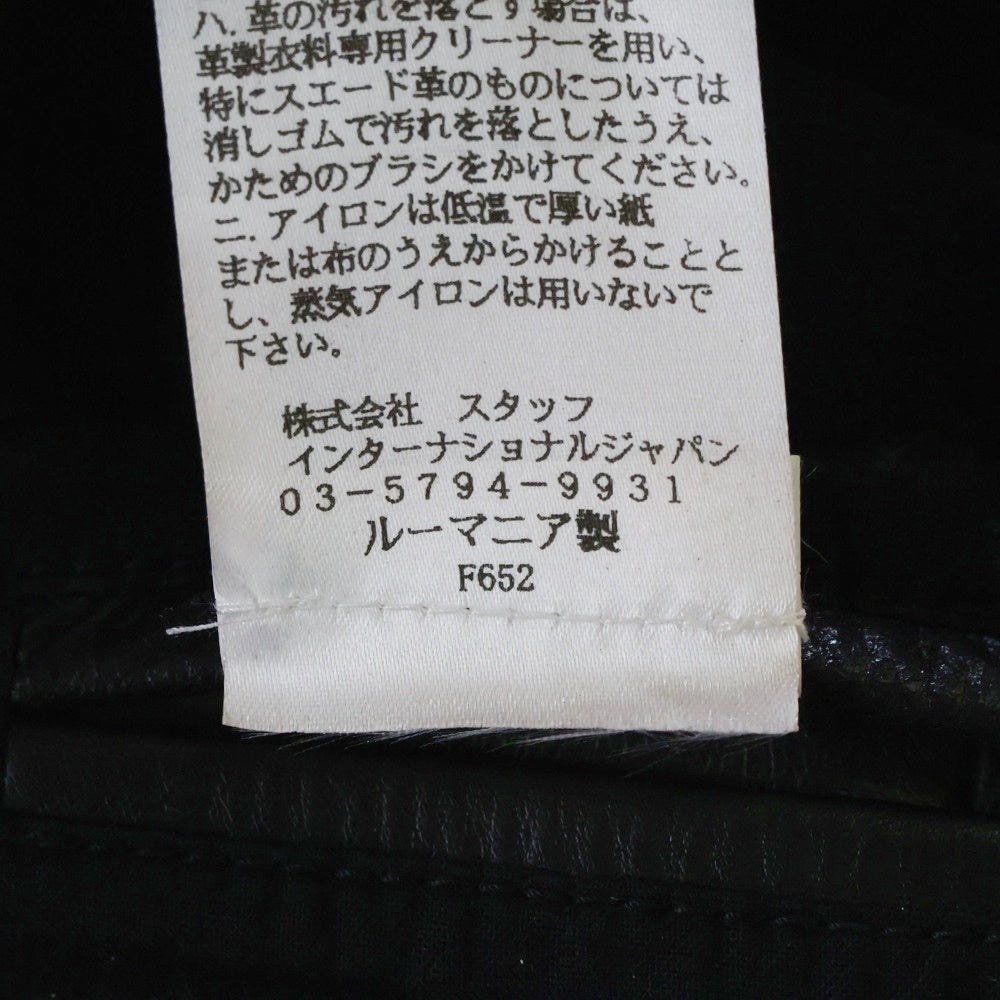 ハ.革の汚れを落とす場合は、
革製衣料専用クリーナーを用い、
特にスエード革のものについては
消しゴムで汚れを落としたうえ、
かためのブラシをかけてください。
ニ.アイロンは低温で厚い紙
または布のうえからかけることと
し、蒸気アイロンは用いないで
下さい。
株式会社 スタッフ
インターナショナルジャパン
03-5794-9931
ルーマニア製
F652